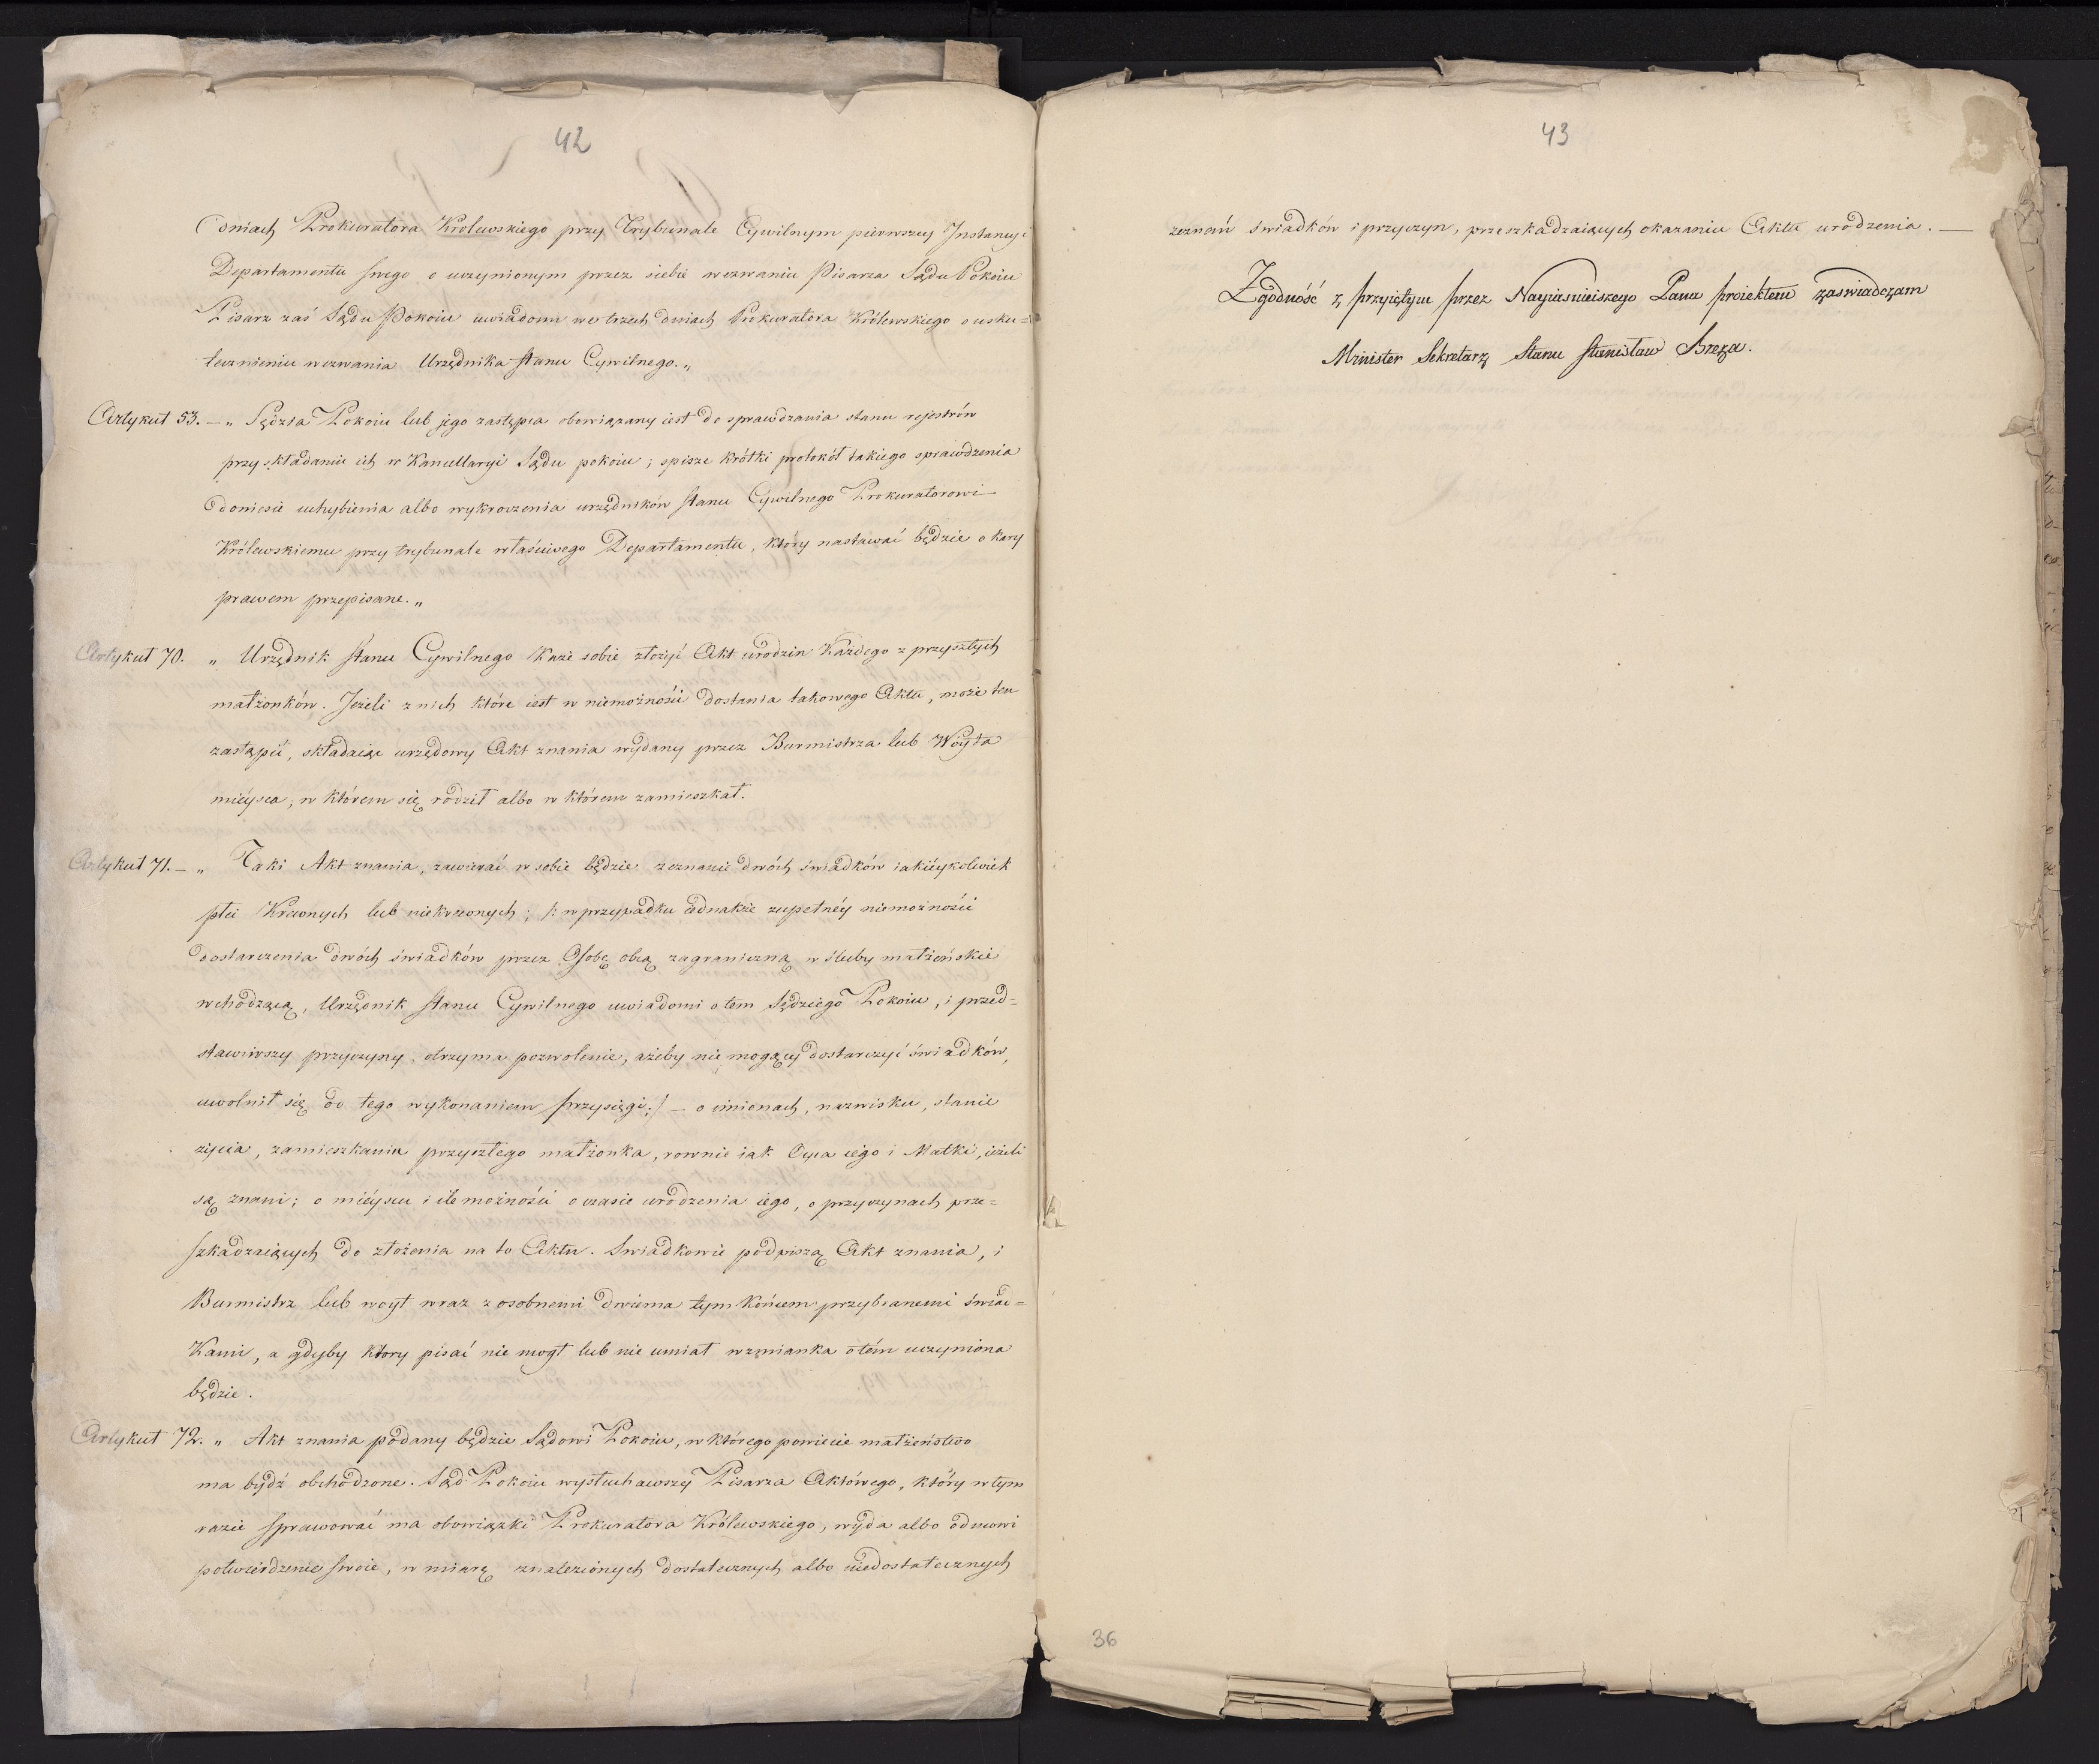 42
dniach Prokuratora Krolewskiego przy Trybunale Cywilnym pierwszey Instancyi
Departamentu swego o uczynionym przez siebie wezwaniu Pisarza Sądu Pokoiu
Pisarz zaś Sądu Pokoiu uwiadomi we trzech dniach Prokuratora Królewskiego o usku=
tecznieniu wezwania Urzędnika stanu Cywilnego. „
Artykuł 53. — „ Sędzia Pokoiu lub jego zastępca obowiązany iest do sprawdzania stanu rejestrów
przy składaniu ich w Kancellaryi Sądu pokoiu; spisze krótki protokół takiego sprawdzenia
doniesie uchybienia albo wykroczenia urzędników stanu Cywilnego Prokuratorowi
Królewskiemu przy trybunale właściwego Departamentu, który nastawać będzie o kary
prawem przepisane. „
Artykuł 70. „ Urzędnik stanu Cywilnego każe sobie złożyć Akt urodzin każdego z przyszłych
małżonków. Jeżeli z nich które iest w niemożności dostania takowego Aktu, może ten
zastąpić, składaiąc urzędowy Akt znania wydany przez Burmistrza lub Wóyta
mieysca, w którem się rodził albo w którem zamieszkał.
Artykuł 71. — „ Taki Akt znania, zawierać w sobie będzie zeznanie dwóch świadków iakieykolwiek
płci krewnych lub niekrewnych; /: w przypadku iednakże zupełnéy niemożności
dostarczenia dwóch świadków przez Osobę obcą zagraniczną w śluby małżeńskie
wchodzącą, Urzędnik stanu Cywilnego uwiadomi o tem Sędziego Pokoiu, i przed=
stawiwszy przyczyny, otrzyma pozwolenie, ażeby nie mogący dostarczyć świadków,
uwolnił się od tego wykonaniem przysięgi :/ — o imionach, nazwisku, stanie
życia, zamieszkaniu przyszłego małżonka, rownie iak Oyca iego i Matki, ieżeli
są znani; o mieyscu i ile możności o czasie urodzenia iego, o przyczynach prze=
szkadzaiących do złożenia na to Aktu. Swiadkowie podpiszą Akt znania, i
Burmistrz lub woyt wraz z osobnemi dwiema tym końcem przybranemi świad=
kami, a gdyby ktory pisać nie mogł lub nie umiał wzmianka o tém uczyniona
będzie.
Artykuł 72. „ Akt znania podany będzie Sądowi Pokoiu, w którego powiecie małżeństwo
ma bydź obchodzone. Sąd Pokoiu wysłuchawszy Pisarza Aktowego, który w tym
razie sprawować ma obowiązki Prokuratora Królewskiego, wyda albo odmowi
potwierdzenie swoie, w miarę znalezionych dostatecznych albo niedostatecznych
43
zeznań świadków i przyczyn, przeszkadzaiących okazaniu Aktu urodzenia. —
Zgodność z przyiętym przez Nayiasnieiszego Pana proiektem zaswiadczam
Minister Sekretarz Stanu Stanisław Breza.
36